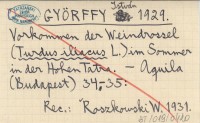 István
GYÖRFFY 1929.
Vorkommen der Weindrossel
(Turdus iliacus L.) im Sommer
in der Hohen Tatra. — Aquila
(Budapest) 34-35:
Rec.: Roszkowski W. 1931.